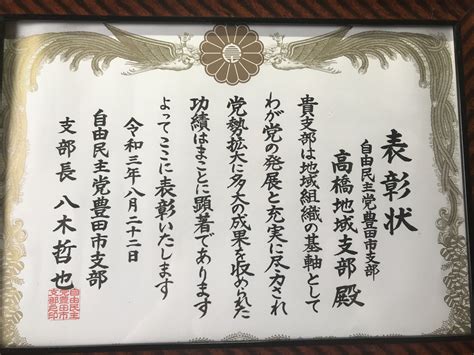 表彰状
自由民主党豊田市支部
高橋地域支部 殿
貴支部は地域組織の基軸として
わが党の発展と充実に尽力され
党勢拡大に多大の成果を収められた
功績はまことに顕著であります
よってここに表彰いたします
令和三年八月二十二日
自由民主党豊田市支部
支部長 八木哲也
自由民主
党豊田市
支部之印